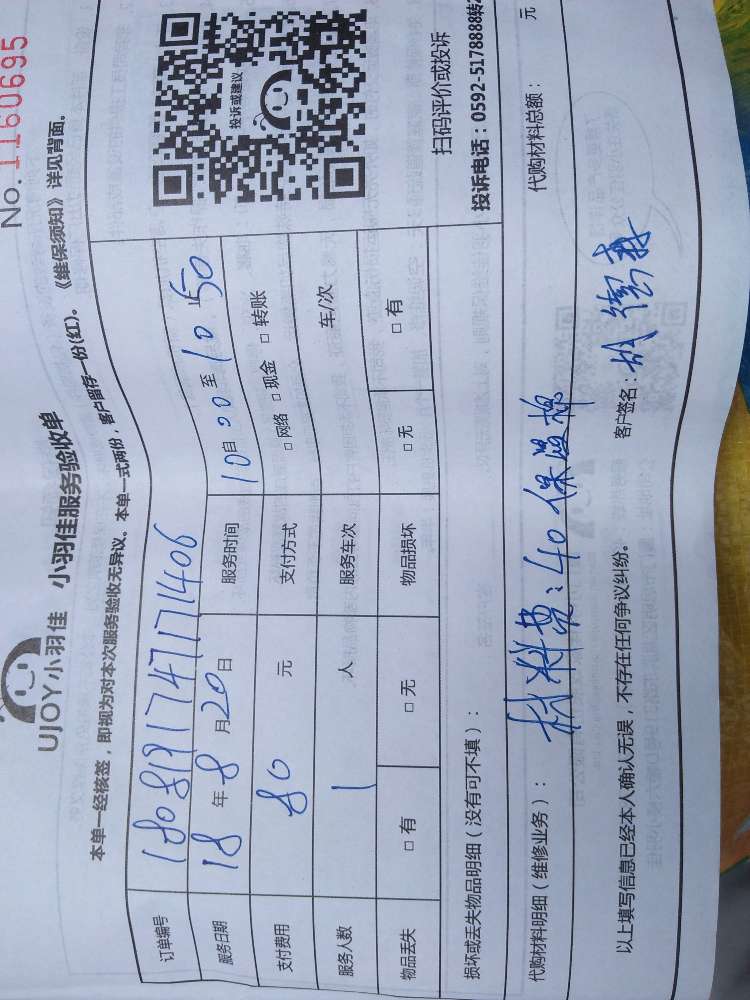 No.1160695
UJOY小羽佳 小羽佳服务验收单
本单一经核签，即视为对本次服务验收无异议。本单一式两份，客户留存一份(红)。《维保须知》详见背面。
订单编号 180819174717406
服务日期 18年8月20日 服务时间 10自00至10止50
支付费用 80 元 支付方式 □网络 □现金 □转账
服务人数 1 人 服务车次 车/次
物品丢失 □有 □无 物品损坏 □无 □有
投诉或建议
扫码评价或投诉
投诉电话：0592-5178888转2
损坏或丢失物品明细（没有可不填）：
代购材料明细（维修业务）： 材料费：40 保温棉 代购材料总额： 元
以上填写信息已经本人确认无误，不存在任何争议纠纷。 客户签名：